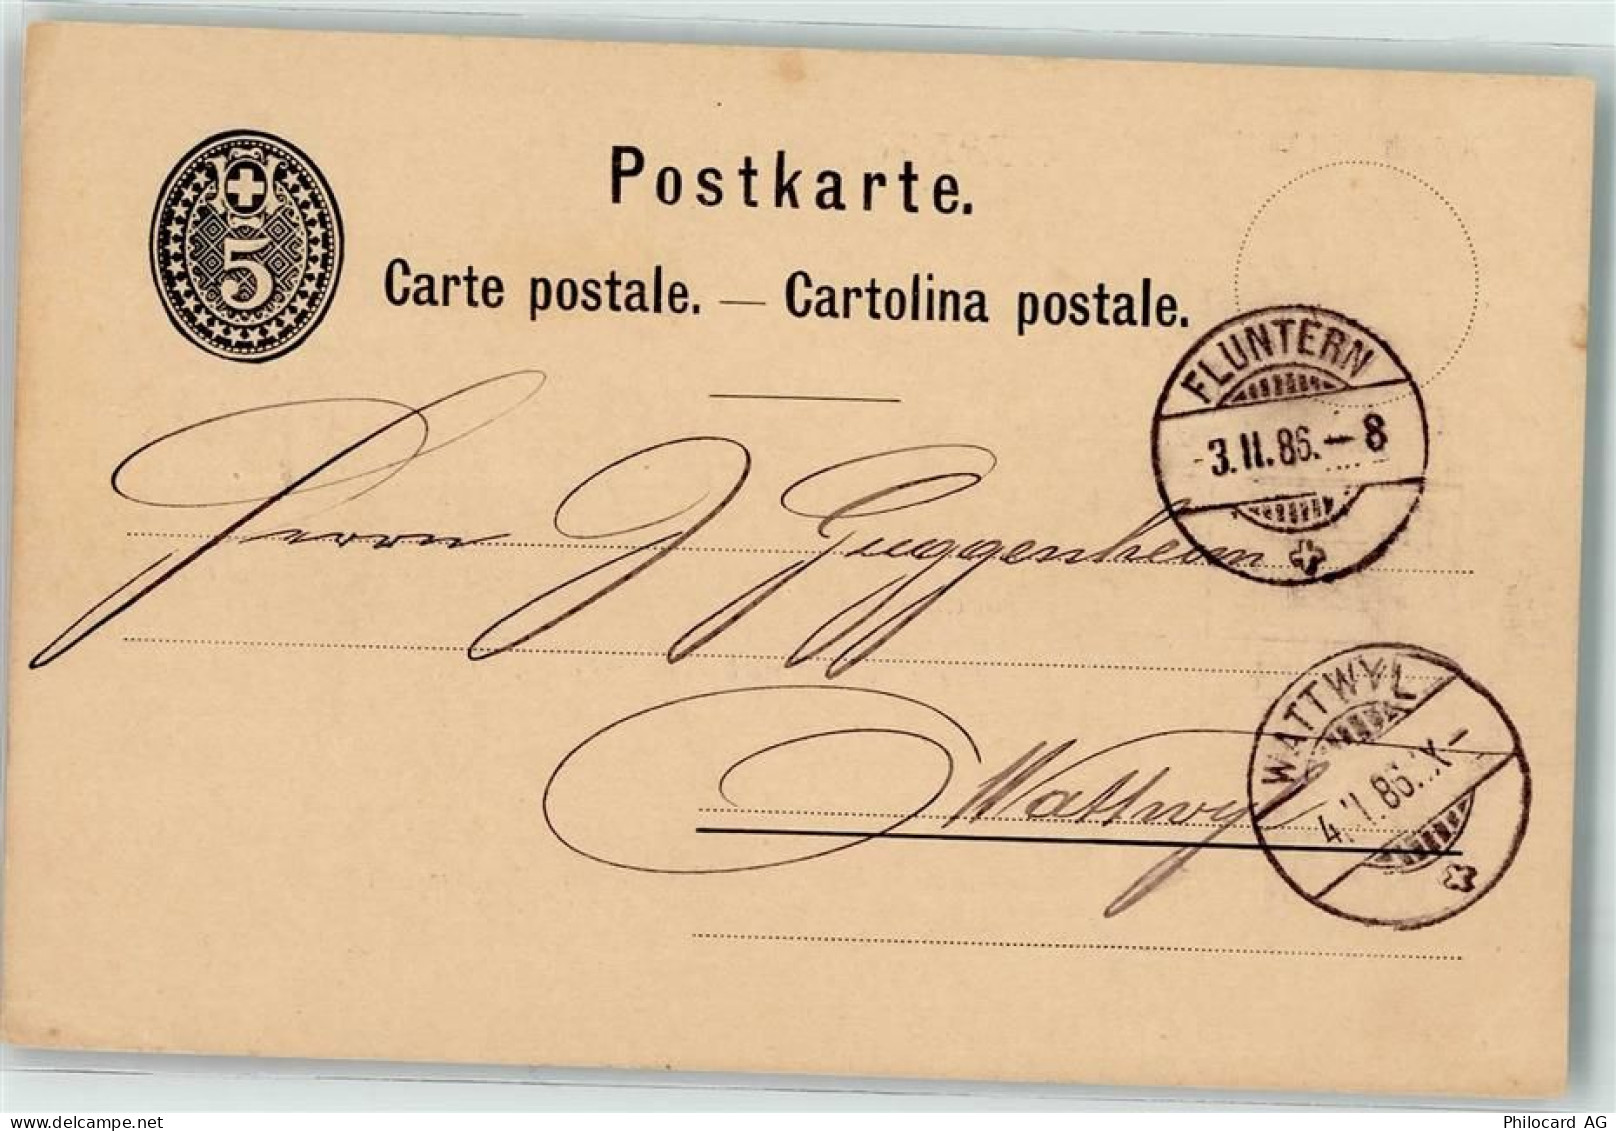 5
Postkarte.
Carte postale. — Cartolina postale.
FLUNTERN
-3.II.86.-8
Herrn J Guggenheim
WATTWYL
4.II.86.
Wattwyl
Philocard AG